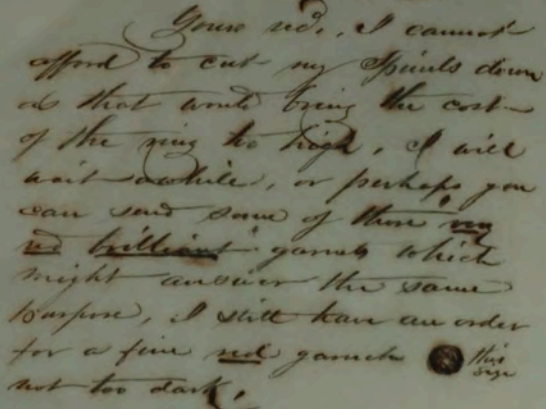 Yours recd., I cannot
afford to cut my Spinels down
as that would bring the cost
of the ring too high, I will
wait awhile, or perhaps you
can send some of those very
red brilliant garnets which
might answer the same
purpose, I still have an order
for a fine red garnet this
size
not too dark,